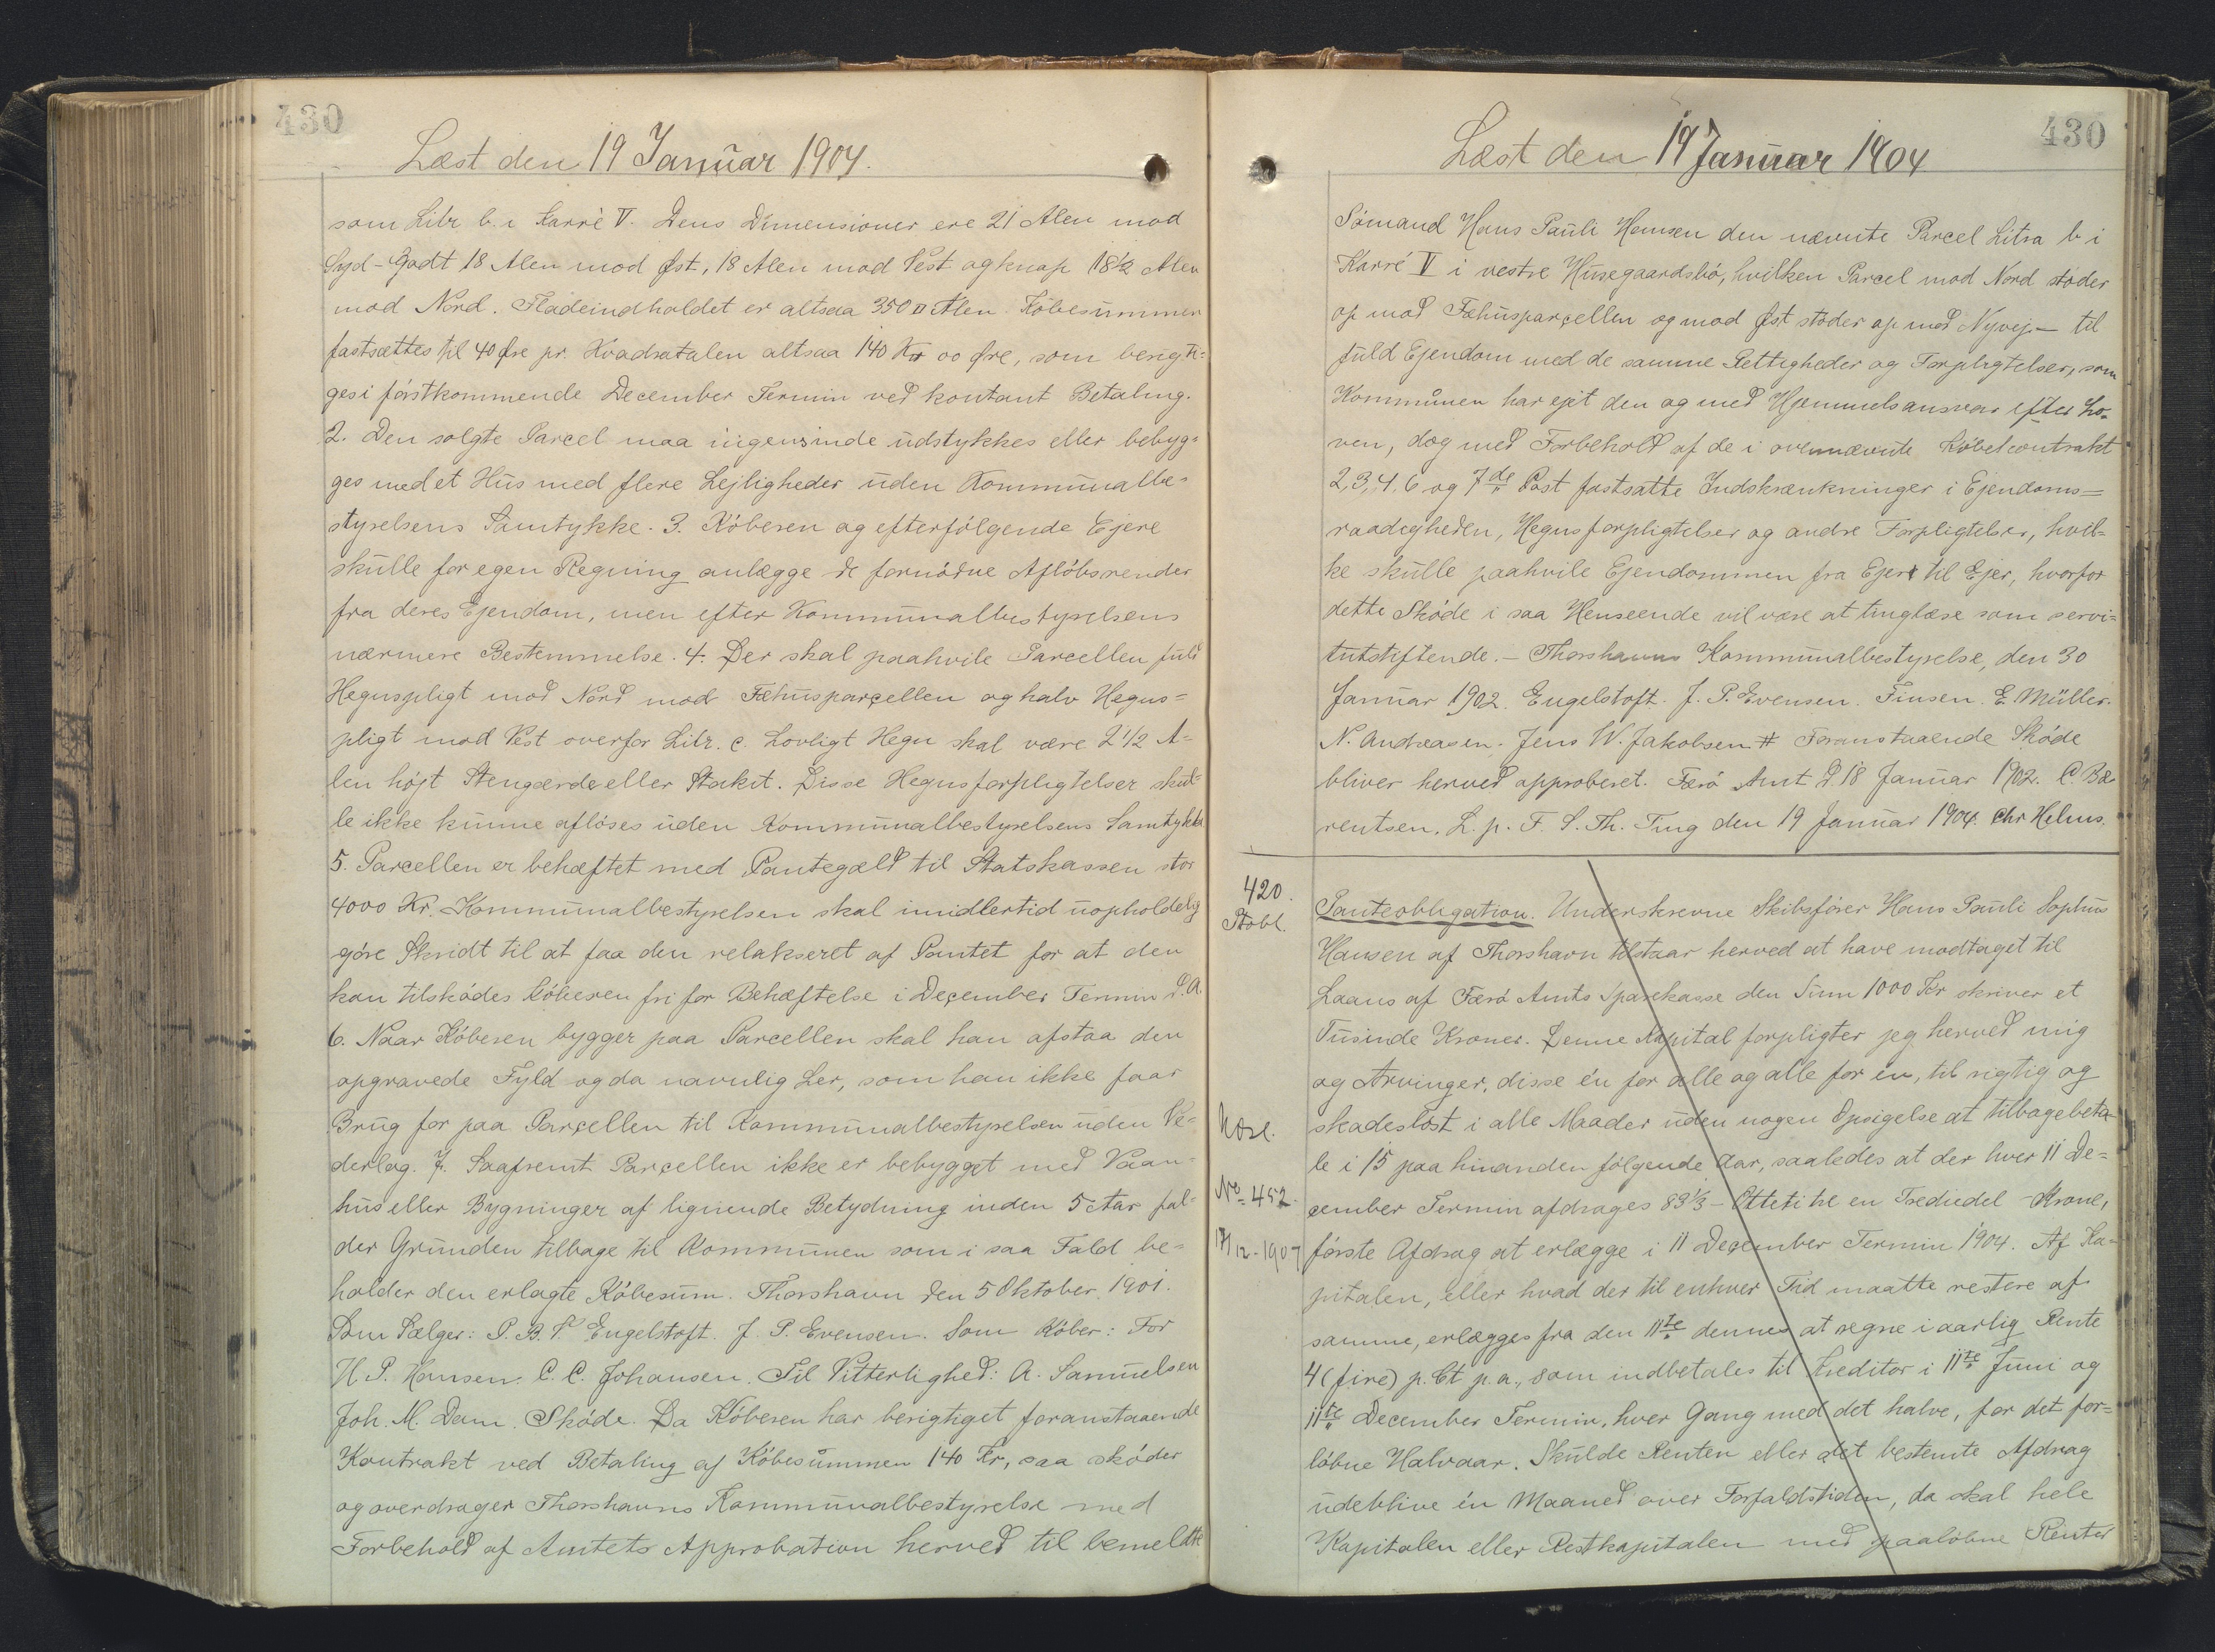 430
Læst den 19 Januar 1904.
som Litr b. i Karré V. Dens Dimensioner ere 21 Alen mod
Syd - Godt 18 Alen mod Øst, 18 Alen mod Vest og knap 18½ Alen
mod Nord. Fladeindholdet er altsaa 350 □ Alen Købesummen
fastsættes til 40 Øre pr. Kvadratalen altsaa 140 Kr 00 Øre, som berigti=
ges i førstkommende December Termin ved kontant Betaling.
2. Den solgte Parcel maa ingensinde udstykkes eller bebyg=
ges med et Hus med flere Lejligheder uden Kommunalbe=
styrelsens Samtykke. 3. Køberen og efterfølgende Ejere
skulle for egen Regning anlægge de fornødne Afløbsrender
fra deres Ejendom, men efter Kommunalbestyrelsens
nærmere Bestemmelse. 4. Der skal paahvile Parcellen fuld
Hegnspligt mod Nord mod Fæhusparcellen og halv Hegns=
pligt mod Vest overfor Litr. c. Lovligt Hegn skal være 2 1/2 A=
len højt Stengærde eller Stakit. Disse Hegnsforpligtelser skul=
le ikke kunne afløses uden Kommunalbestyrelsens Samtykke
5. Parcellen er behæftet med Pantegæld til Statskassen stor
4000 Kr. Kommunalbestyrelsen skal imidlertid uopholdelig
gøre Skridt til at faa den relakseret af Pantet for at den
kan tilskødes Køberen fri for Behæftelse i December Termin d. A.
6. Naar Køberen bygger paa Parcellen skal han afstaa den
opgravede Fyld og da navnlig Ler, som han ikke faar
Brug for paa Parcellen til Kommunalbestyrelsen uden Ve=
derlag. 7. Saafremt Parcellen ikke er bebygget med Vaan=
hus eller Bygninger af lignende Betydning inden 5 Aar fal=
der Grunden tilbage til Kommunen som i saa Fald be=
holder den erlagte Købesum. Thorshavn den 5 Oktober 1901.
Som Sælger: P. B. V. Engelstoft. J. P. Evensen. Som Køber: For
H. P. Hansen. C. C. Johansen. Til Vitterlighed: A. Samuelsen
Joh. M. Dam. Skøde. Da Køberen har berigtiget foranstaaende
Kontrakt ved Betaling af Købesummen 140 Kr, saa skøder
og overdrager Thorshavns Kommunalbestyrelse med
Forbehold af Amtets Approbation herved til bemeldte
430
Læst den 19 Januar 1904
Sømand Hans Pauli Hansen den nævnte Parcel Litra b i
Karré V i vestre Husegaardsbø, hvilken Parcel mod Nord støder
op mod Fæhusparcellen og mod Øst støder op mod Nyvej - til
fuld Ejendom med de samme Rettigheder og Forpligtelser, som
Kommunen har ejet den og med Hjemmelsansvar efter Lo=
ven, dog med Forbehold af de i ovennævnte Købekontrakt
2, 3, 4. 6 og 7de Post fastsatte Indskrænkninger i Ejendoms=
raadigheden, Hegnsforpligtelser og andre Forpligtelser, hvil=
ke skulle paahvile Ejendommen fra Ejer til Ejer, hvorfor
dette Skøde i saa Henseende vil være at tinglæse som servi=
tutstiftende. - Thorshavns Kommunalbestyrelse, den 30
Januar 1902. Engelstoft. J. P. Evensen. Finsen. E. Müller.
N. Andreasen. Jens W. Jakobsen. # Foranstaaende Skøde
bliver herved approberet. Færø Amt d 18 Januar 1902. C. Bæ=
rentsen. L. p. F. S. Th. Ting den 19 Januar 1904. Chr Helms.
420.
Stobl.
Panteobligation. Underskrevne Skibsfører Hans Pauli Sophus
Hansen af Thorshavn tilstaar herved at have modtaget til
Laans af Færø Amts Sparekasse den Sum 1000 Kr skriver et
Tusinde Kroner. Denne Kapital forpligter jeg herved mig
og Arvinger, disse én for alle og alle for én, til rigtig og
skadesløst i alle Maader uden nogen Opsigelse at tilbagebeta=
le i 15 paa hinanden følgende Aar, saaledes at der hver 11 De=
No 452.
cember Termin afdrages 83 1/3 - Otteti tre en Trediedel - Krone,
17/12-1907
første Afdrag at erlægge i 11 December Termin 1904. Af Ka=
pitalen, eller hvad der til enhver Tid maatte restere af
samme, erlægges fra den 11te dennes at regne i aarlig Rente
4 (fire) p. Ct p. a., som indbetales til Kreditor i 11te Juni og
11te December Termin, hver Gang med det halve, for det for=
løbne Halvaar. Skulde Renten eller det bestemte Afdrag
udeblive én Maaned over Forfaldstiden, da skal hele
Kapitalen eller Restkapitalen med paaløbne Renter